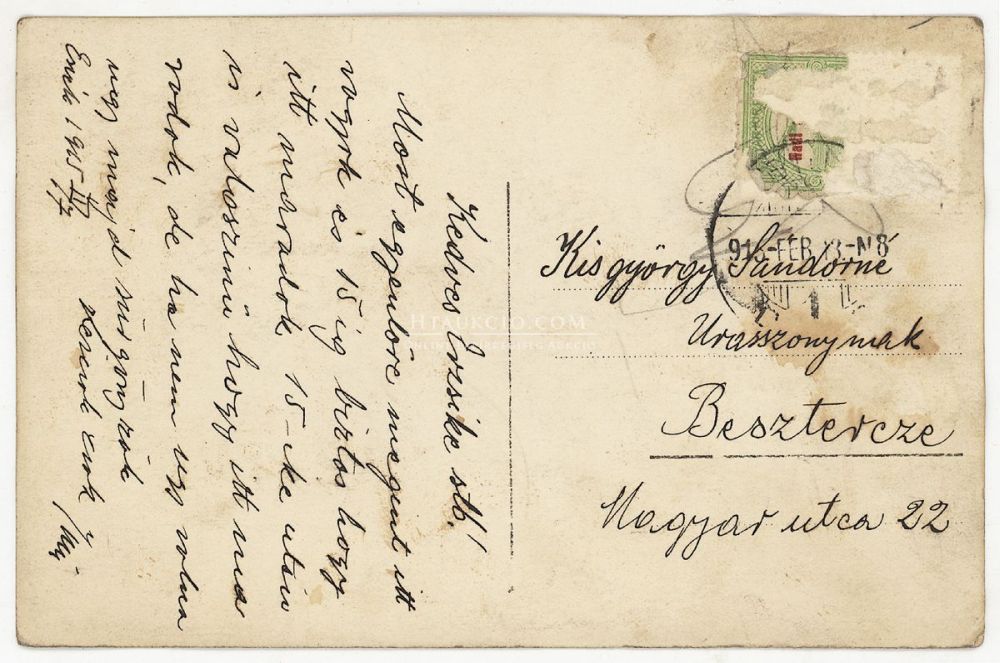 Kedves Örzsike stb!
Most egyenlöre megint itt
vagyok és 15 ig biztos hogy
itt maradok. 15-ike után
is valoszinü hogy itt ma
radok, de ha nem ugy volna
ugy majd sürgönyzök
Kezeit csok
1915
Hadi
-FEB
-N8
1
Kisgyörgy Sándorné
Urasszonynak
Besztercze
Magyar utca 22
HTAUKCIO.COM